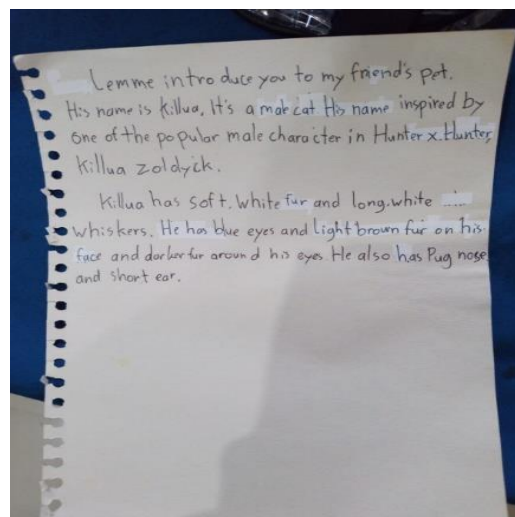 Lemme introduce you to my friend's pet.
His name is Killua, It's a male cat His name inspired by
one of the popular male character in Hunter x Hunter,
Killua Zoldyck.
Killua has soft, white fur and long, white
whiskers. He has blue eyes and light brown fur on his
face and darker fur around his eyes. He also has Pug nose
and short ear.